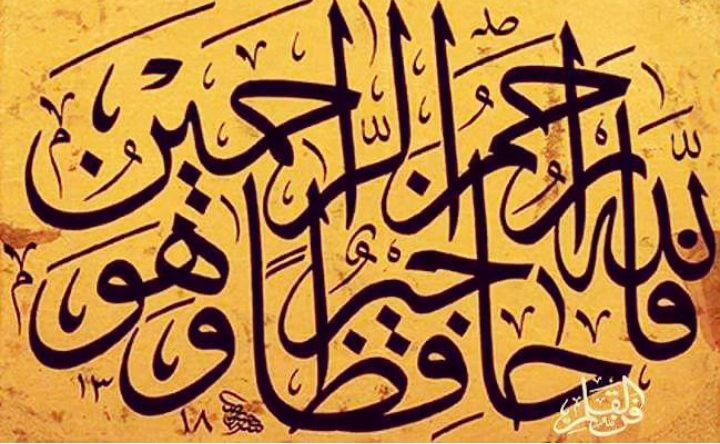 فَاللّٰهُ خَيْرٌ حَافِظًا وَهُوَ أَرْحَمُ الرَّاحِمِينَ
١٣
١٨
فن القلم